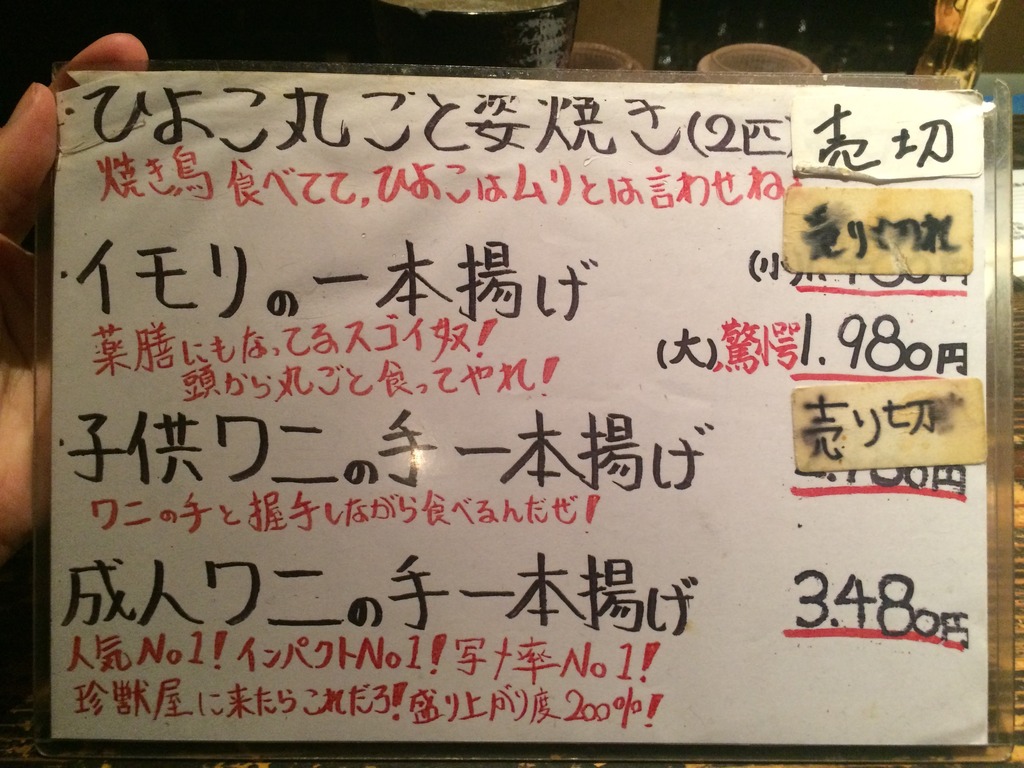 ひよこ丸ごと姿焼き(2匹) 売切
焼き鳥食べてて,ひよこはムリとは言わせねぇ
売り切れ
・イモリの一本揚げ (小)
薬膳にもなってるスゴイ奴! (大)驚愕1.980円
頭から丸ごと食ってやれ!
・子供ワニの手一本揚げ 売り切 円
ワニの手と握手しながら食べるんだぜ!
成人ワニの手一本揚げ 3.480円
人気No1!インパクトNo1!写メ率No1!
珍獣屋に来たらこれだろ!盛り上がり度200%!